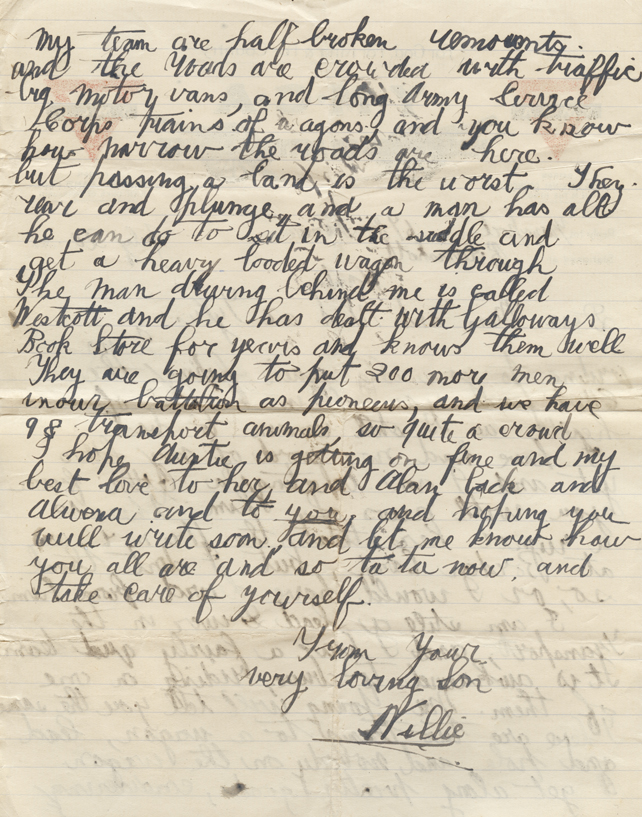 my team are half broken remounts.
and the roads are crowded with traffic
big motor vans, and long Army Service
Corps trains of wagons. and you know
how narrow the roads are here.
but passing a band is the worst. They
rear and plunge, and a man has all
he can do to sit in the saddle and
get a heavy loaded wagon through
The man driving behind me is called
Westcott and he has dealt with Galloways
Book Store for years and knows them well
They are going to put 200 more men
in our battalion as pioneers, and we have
98 transport animals, so quite a crowd
I hope Auntie is getting on fine and my
best love to her, and Alan Jack and
Alwena and to you, and hoping you
will write soon, and let me know how
you all are and so ta ta now, and
take care of yourself.
From Your
very loving son
Willie